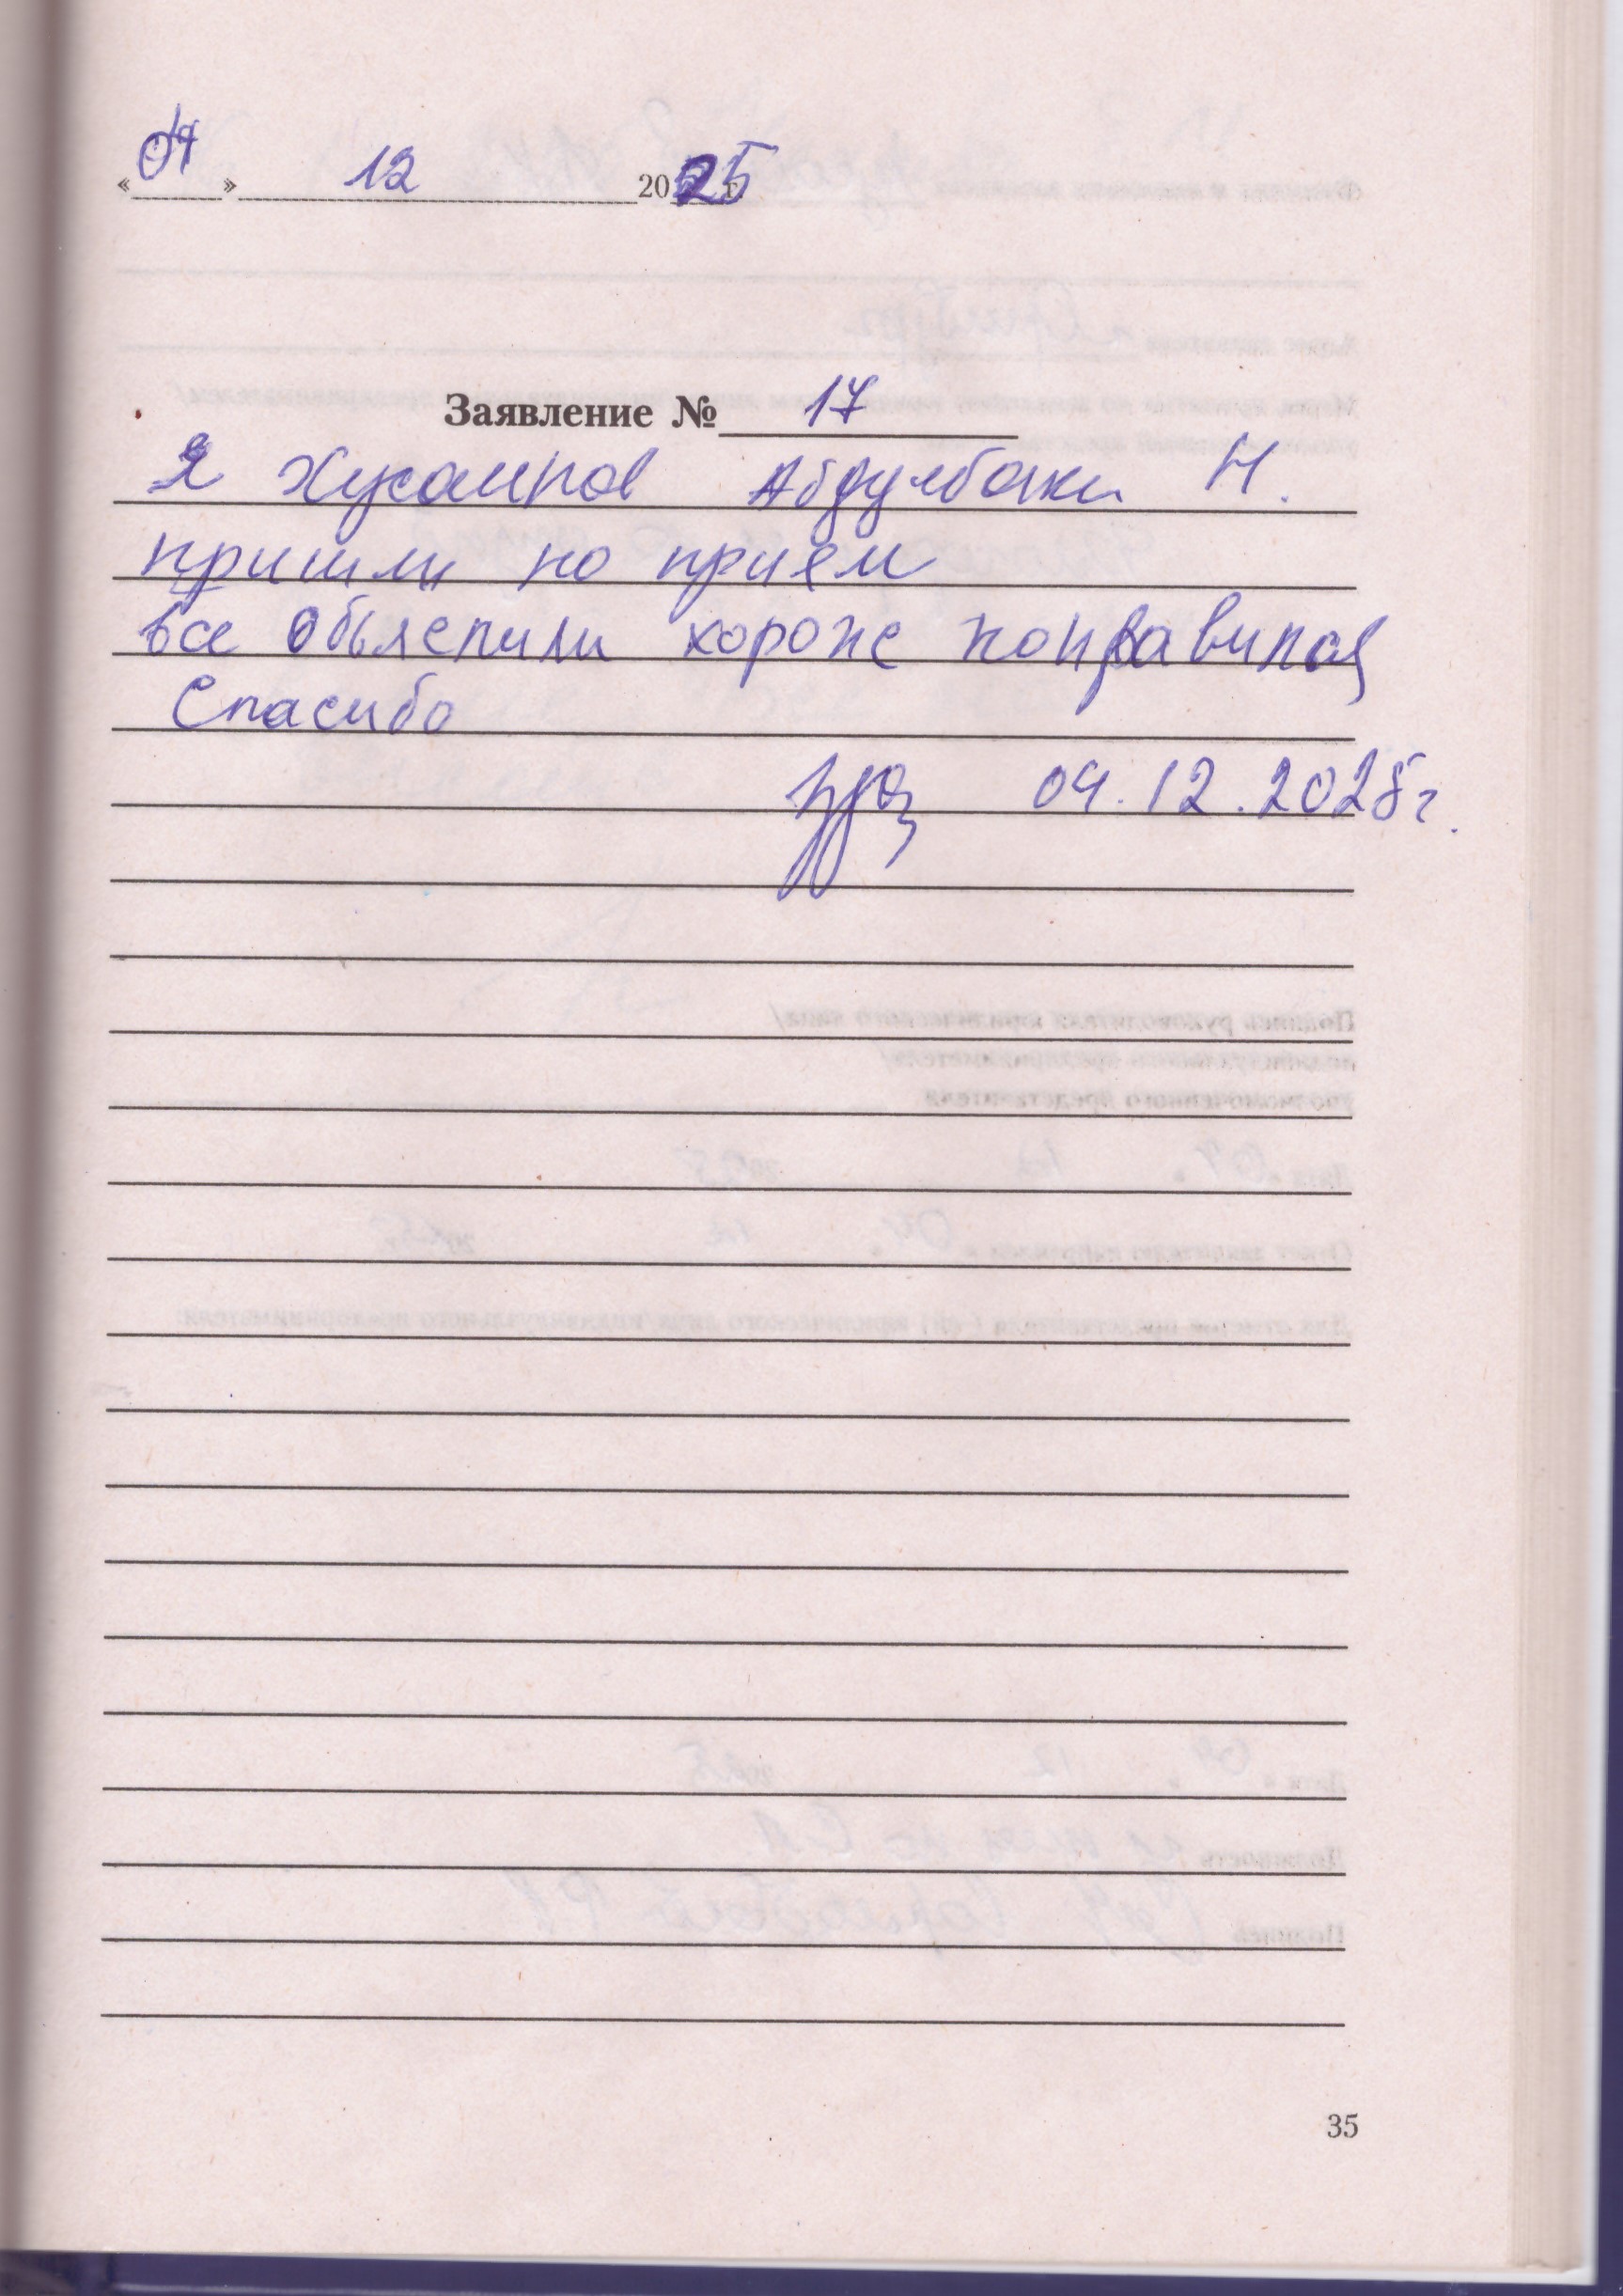 «04» 12 2025 г
Заявление № 17
Я Хусаинов Абдулбаки Н.
пришли на приём
все объяснили хороше понравилася
Спасибо
04.12.2025г.
35